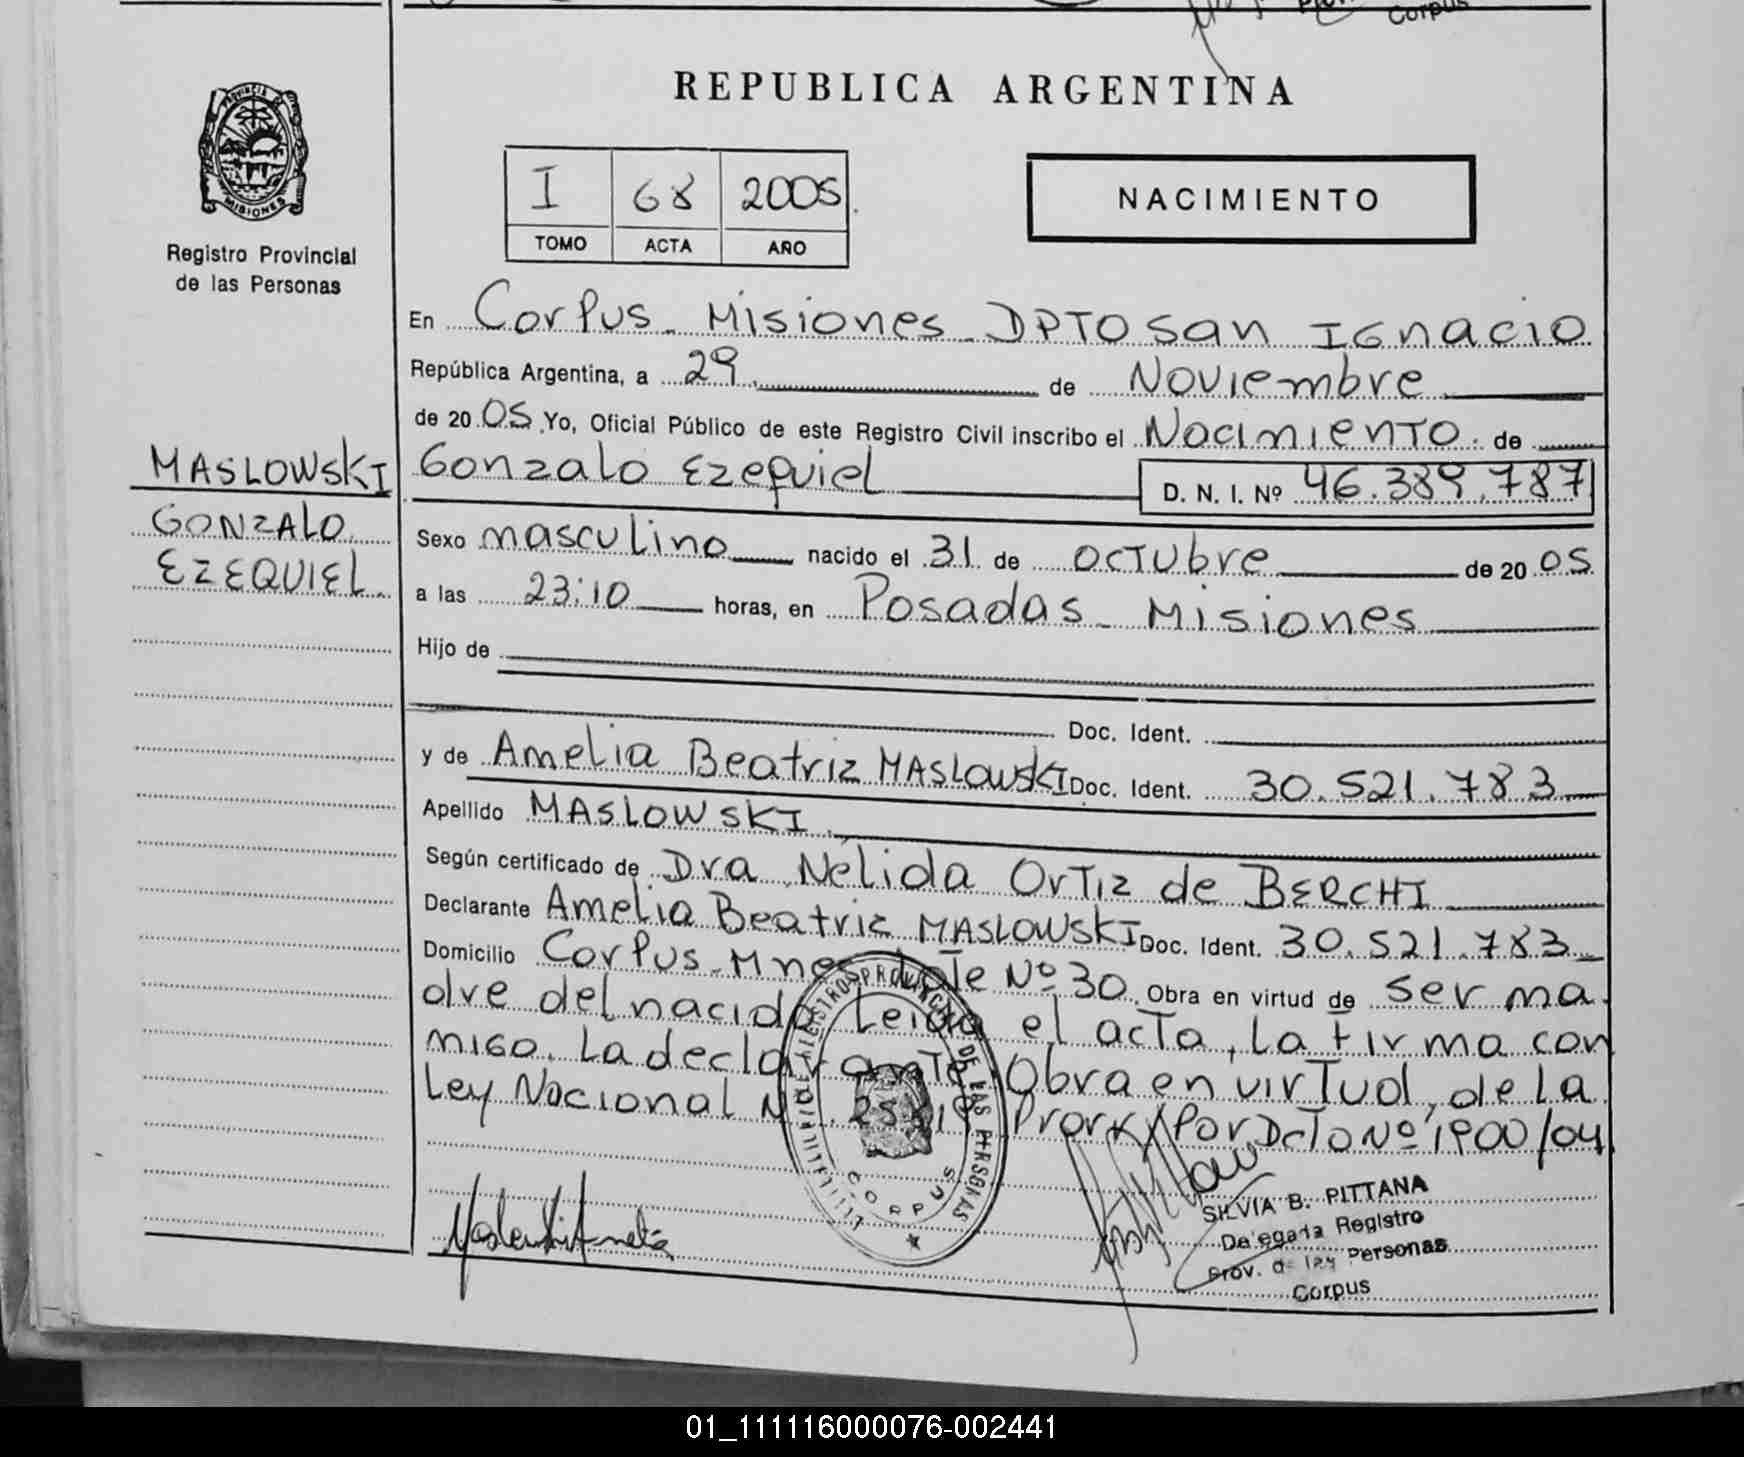 Corpus
REPUBLICA ARGENTINA
PROVINCIA DE
MISIONES
Registro Provincial
de las Personas
I 68 2005
TOMO ACTA AÑO
NACIMIENTO
En Corpus - Misiones - DPTO San Ignacio
República Argentina, a 29 de Noviembre
de 2005 Yo, Oficial Público de este Registro Civil inscribo el Nacimiento de
MASLOWSKI
GONZALO
EZEQUIEL
Gonzalo Ezequiel D. N. I. Nº 46.389.787
Sexo masculino nacido el 31 de octubre de 2005
a las 23:10 horas, en Posadas - Misiones
Hijo de
Doc. Ident.
y de Amelia Beatriz MASLOWSKI Doc. Ident. 30.521.783
Apellido MASLOWSKI
Según certificado de Dra Nélida Ortiz de BERCHI
Declarante Amelia Beatriz MASLOWSKI Doc. Ident. 30.521.783
Domicilio Corpus - Mnes lote Nº 30 Obra en virtud de ser ma
dre del nacido Leida el acta, La firma con
migo. La declarante Obra en virtud, de la
Ley Nacional Por Dcto Nº 1900/04
PROVINCIAL DE LAS PERSONAS
CORPUS
SILVIA B. PITTANA
Delegada Registro
Prov. de las Personas
Corpus
01_111116000076-002441